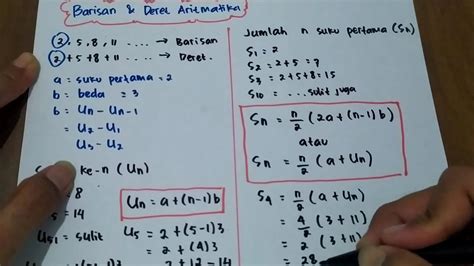 Barisan & Deret Aritmatika
2, 5, 8, 11 .... → Barisan
2 + 5 + 8 + 11 .... → Deret.
a = suku pertama = 2
b = beda = 3
b = Un - Un-1
= U2 - U1
U3 - U2
ke-n (Un)
8
= 14
U51 = sulit
Un = a + (n-1) b
U5 = 2 + (5-1) 3
= 2 + (4) 3
= 2 + 12 = 14
Jumlah n suku pertama (Sn)
S1 = 2
S2 = 2 + 5 = 7
S3 = 2 + 5 + 8 = 15
S10 = ... sulit juga
Sn = n/2 (2a + (n-1) b)
atau
Sn = n/2 (a + Un)
S4 = n/2 (a + Un)
= 4/2 (3 + 11)
= 2 (3 + 11)
= 28